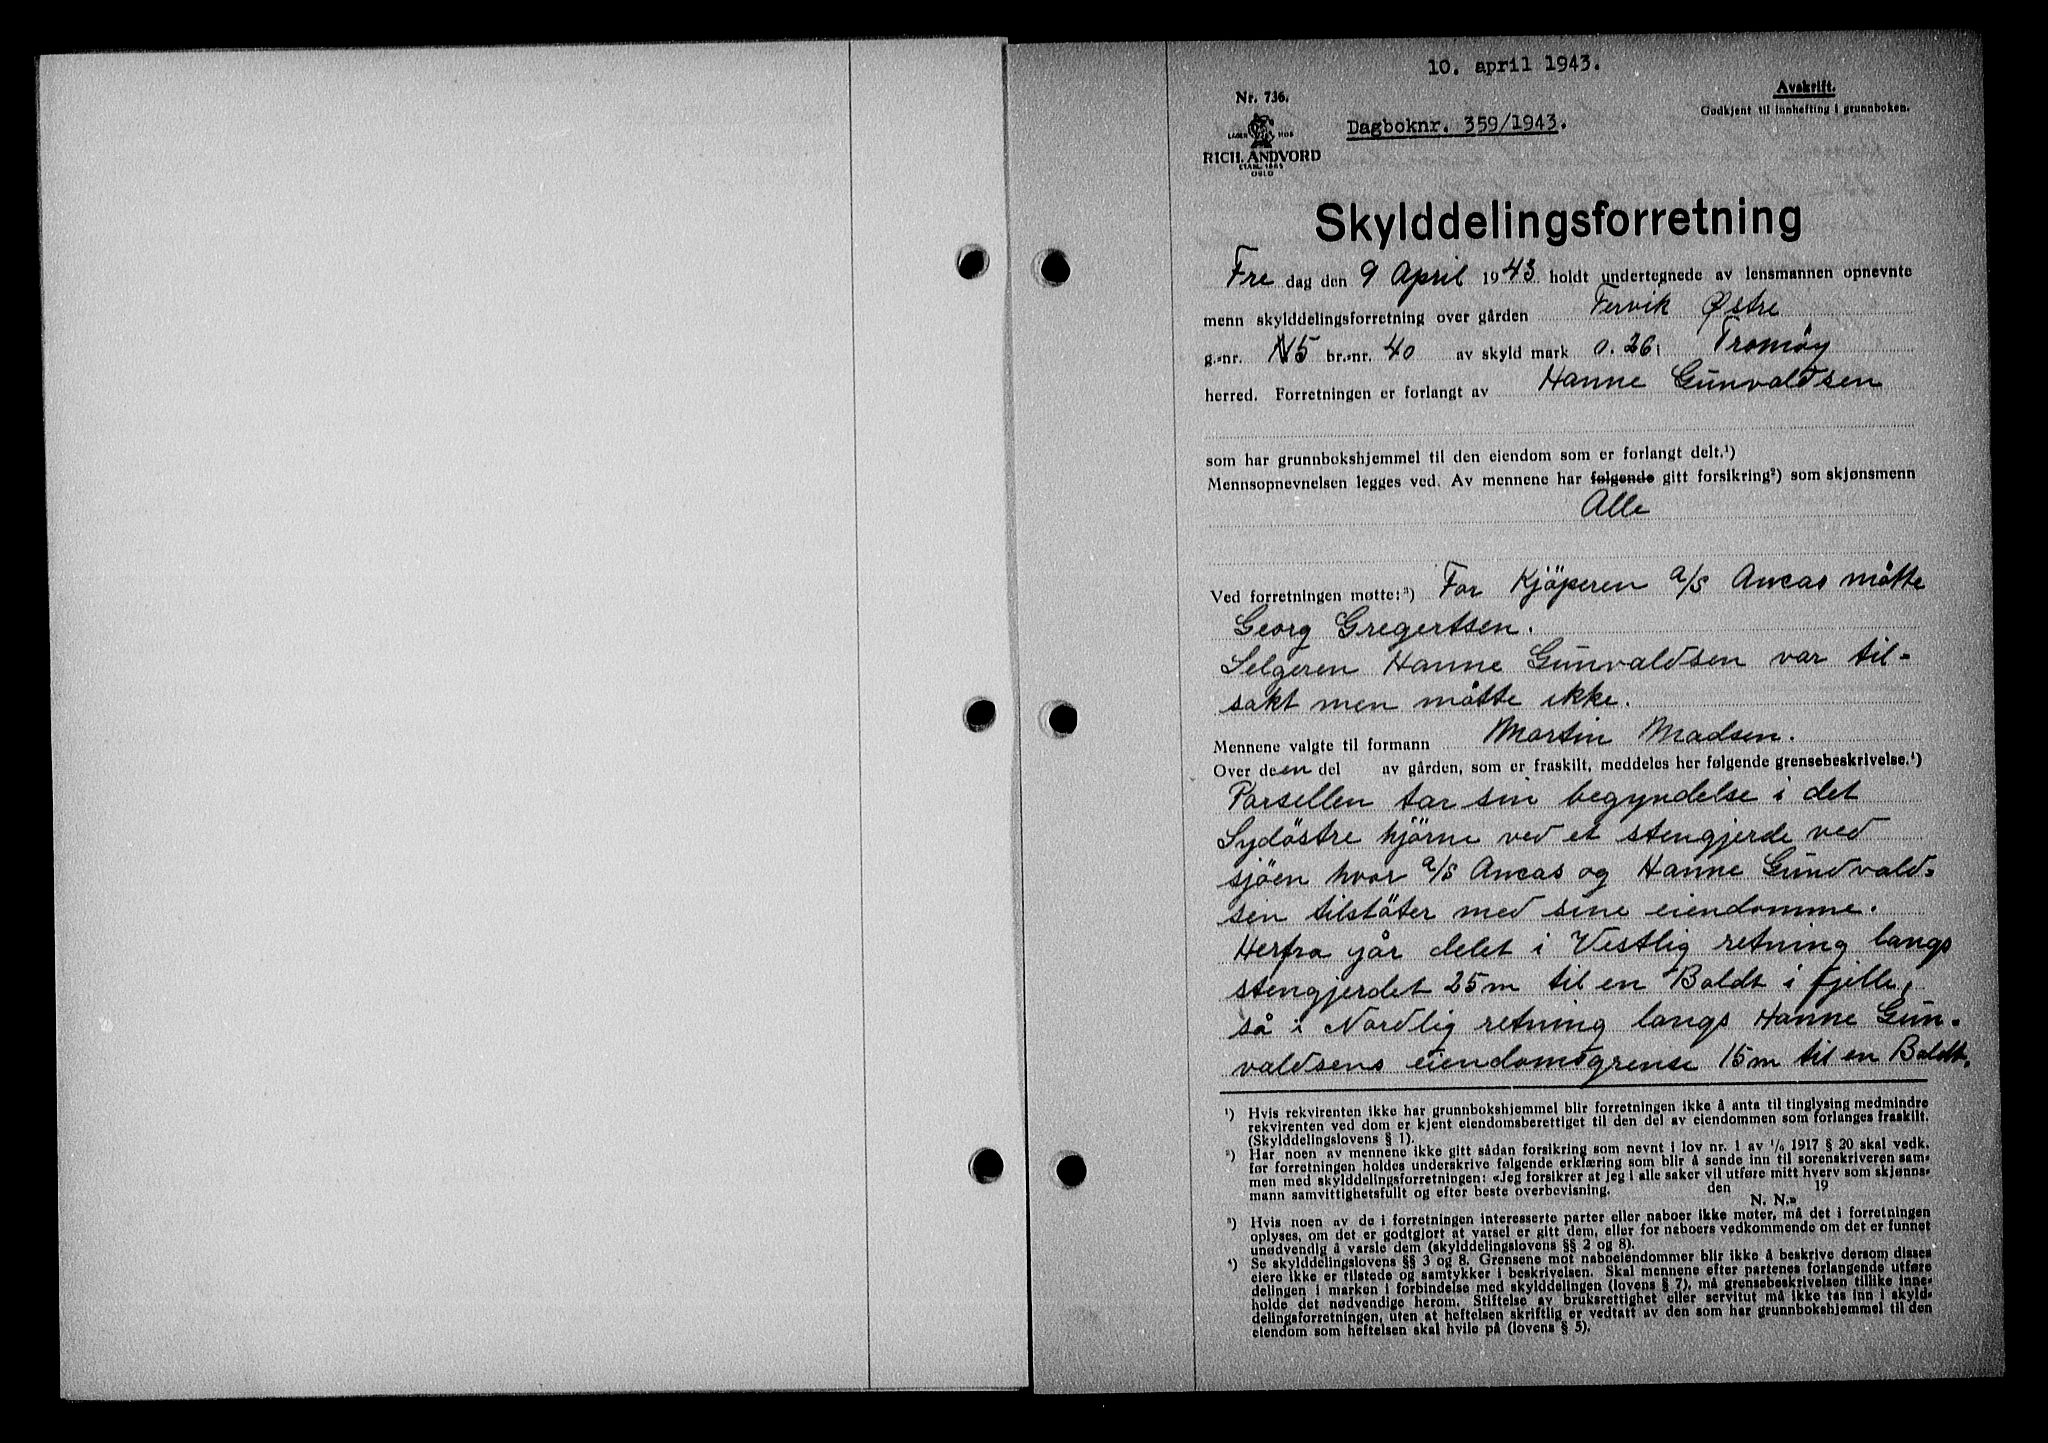 10. april 1943.
Avskrift.
Godkjent til innhefting i grunnboken.
Nr. 736.
Dagboknr. 359/1943.
LAGER HOS
RICH. ANDVORD
ETABL. 1865
OSLO
Skylddelingsforretning
Fre dag den 9 April 1943 holdt undertegnede av lensmannen opnevnte
menn skylddelingsforretning over gården Tervik Østre
g.-nr. 5 br.-nr. 40 av skyld mark 0.26, Tromöy
herred. Forretningen er forlangt av Hanne Gunvaldsen
som har grunnbokshjemmel til den eiendom som er forlangt delt.¹)
Mennsopnevnelsen legges ved. Av mennene har følgende gitt forsikring²) som skjønsmenn
Alle
Ved forretningen møtte:³) For Kjöperen a/s Ancas måtte
Georg Gregertsen.
Selgeren Hanne Gunvaldsen var til-
sakt men måtte ikke.
Mennene valgte til formann Martin Madsen.
Over deen del av gården, som er fraskilt, meddeles her følgende grensebeskrivelse.⁴)
Parsellen tar sin begyndelse i det
Sydöstre hjörne ved et stengjerde ved
sjöen hvor a/s Ancas og Hanne Gundvald-
sen tilstöter med sine eiendomme.
Herfra går delet i Vestlig retning langs
stengjerdet 25m til en Boldt i fjelle,
så i Nordlig retning langs Hanne Gun-
valdsens eiendomsgrense 15m til en Boldt.
¹) Hvis rekvirenten ikke har grunnbokshjemmel blir forretningen ikke å anta til tinglysing medmindre
rekvirenten ved dom er kjent eiendomsberettiget til den del av eiendommen som forlanges fraskilt.
(Skylddelingslovens § 1).
²) Har noen av mennene ikke gitt sådan forsikring som nevnt i lov nr. 1 av 1/6 1917 § 20 skal vedk.
før forretningen holdes underskrive følgende erklæring som blir å sende inn til sorenskriveren sam-
men med skylddelingsforretningen: «Jeg forsikrer at jeg i alle saker vil utføre mitt hverv som skjønns-
mann samvittighetsfullt og efter beste overbevisning. den 19
N. N.»
³) Hvis noen av de i forretningen interesserte parter eller naboer ikke møter, må det i forretningen
oplyses, om det er godtgjort at varsel er gitt dem, eller for naboers vedkommende om det er funnet
unødvendig å varsle dem (skylddelingslovens §§ 2 og 8).
⁴) Se skylddelingslovens §§ 3 og 8. Grensene mot naboeiendommer blir ikke å beskrive dersom disses
eiere ikke er tilstede og samtykker i beskrivelsen. Skal mennene efter partenes forlangende utføre
delingen i marken i forbindelse med skylddelingen (lovens § 7), må grensebeskrivelsen tillike inne-
holde det nødvendige herom. Stiftelse av bruksrettighet eller servitut må ikke tas inn i skyld-
delingsforretningen, uten at heftelsen skriftlig er vedtatt av den som har grunnbokshjemmel til den
eiendom som heftelsen skal hvile på (lovens § 5).